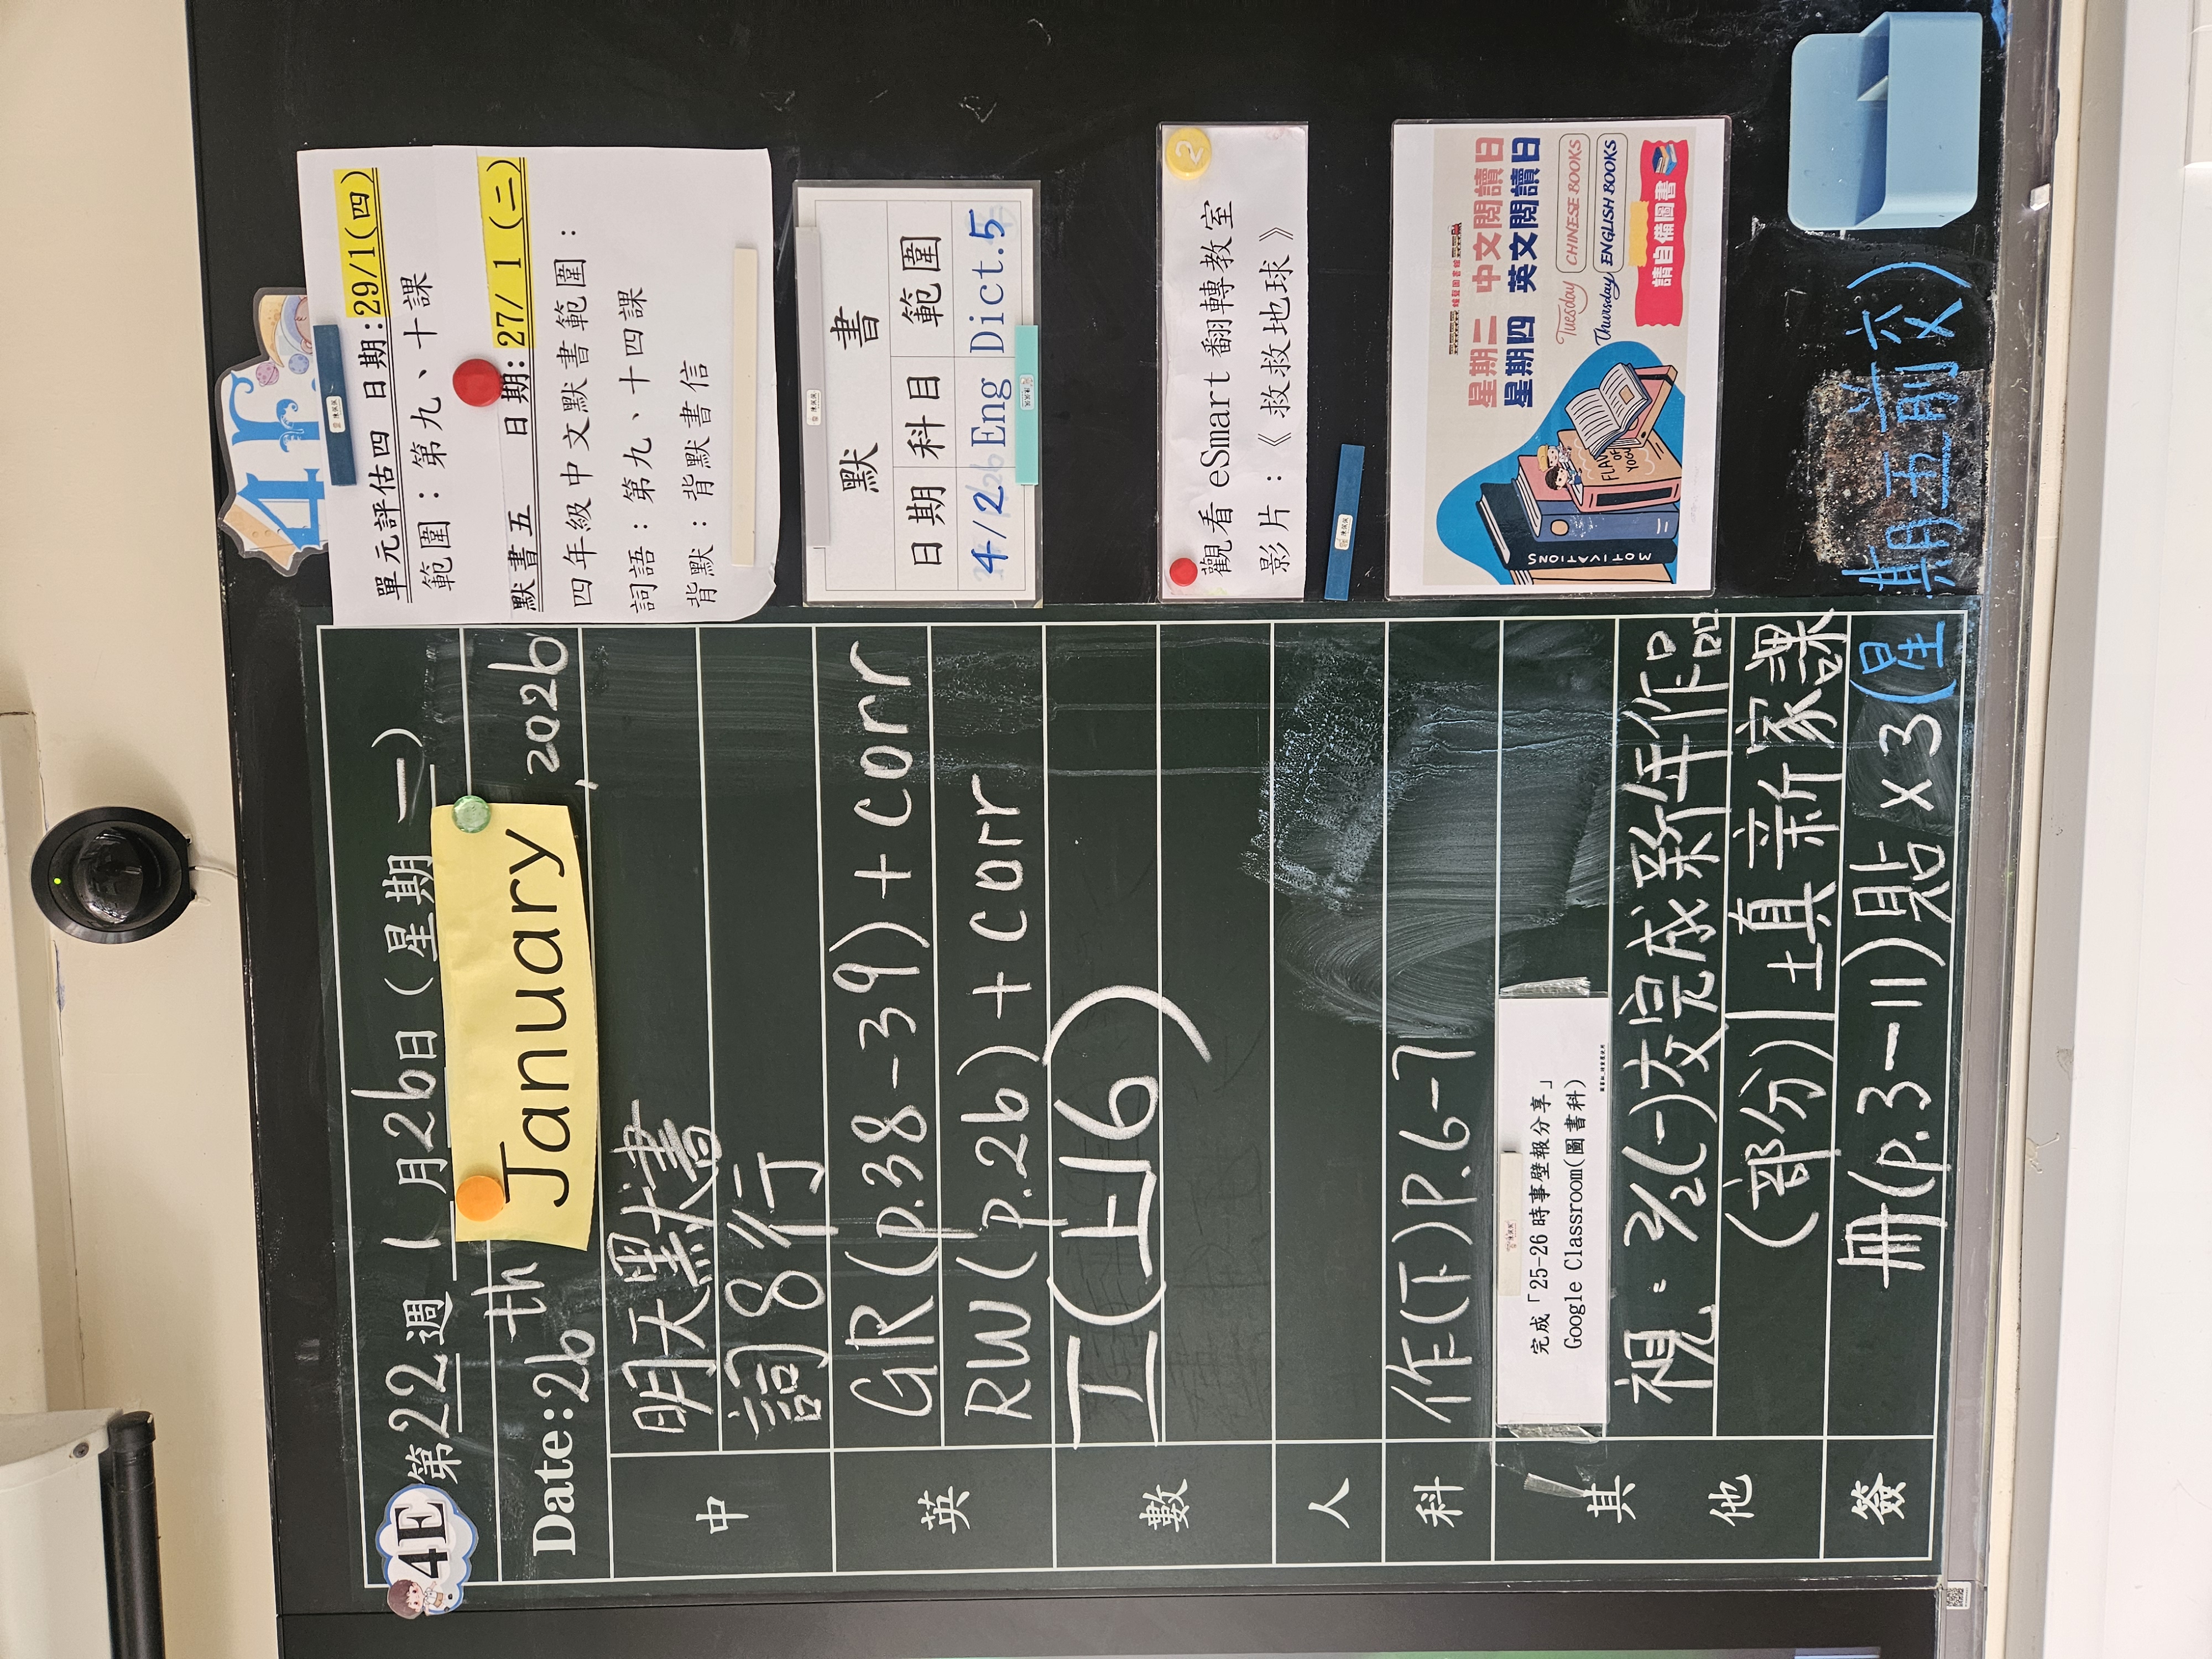 4E 第22週 1月26日(星期一)
Date: 26th January, 2026
中
明天默書
詞8行
英
GR(p.38-39) + corr
RW(p.26) + corr
數
工(上16)
人
科
作(下)P.6-7
其他
完成「25-26時事壁報分享」
Google Classroom(圖書科)
視: 2/2(一)交完成新年作品
(部分)
填新家課
簽
冊(p.3-11)貼x3(星期五前交)
4F
單元評估四 日期:29/1(四)
範圍:第九、十課
默書五 日期: 27/1(二)
四年級中文默書範圍:
詞語:第九、十四課
背默:背默書信
默 書
日期 科目 範圍
4/2 Eng Dict.5
2
觀看 eSmart 翻轉教室
影片:《救救地球》
星期二 中文閱讀日
星期四 英文閱讀日
Tuesday CHINESE BOOKS
Thursday ENGLISH BOOKS
請自備圖書
MOTIVATIONS